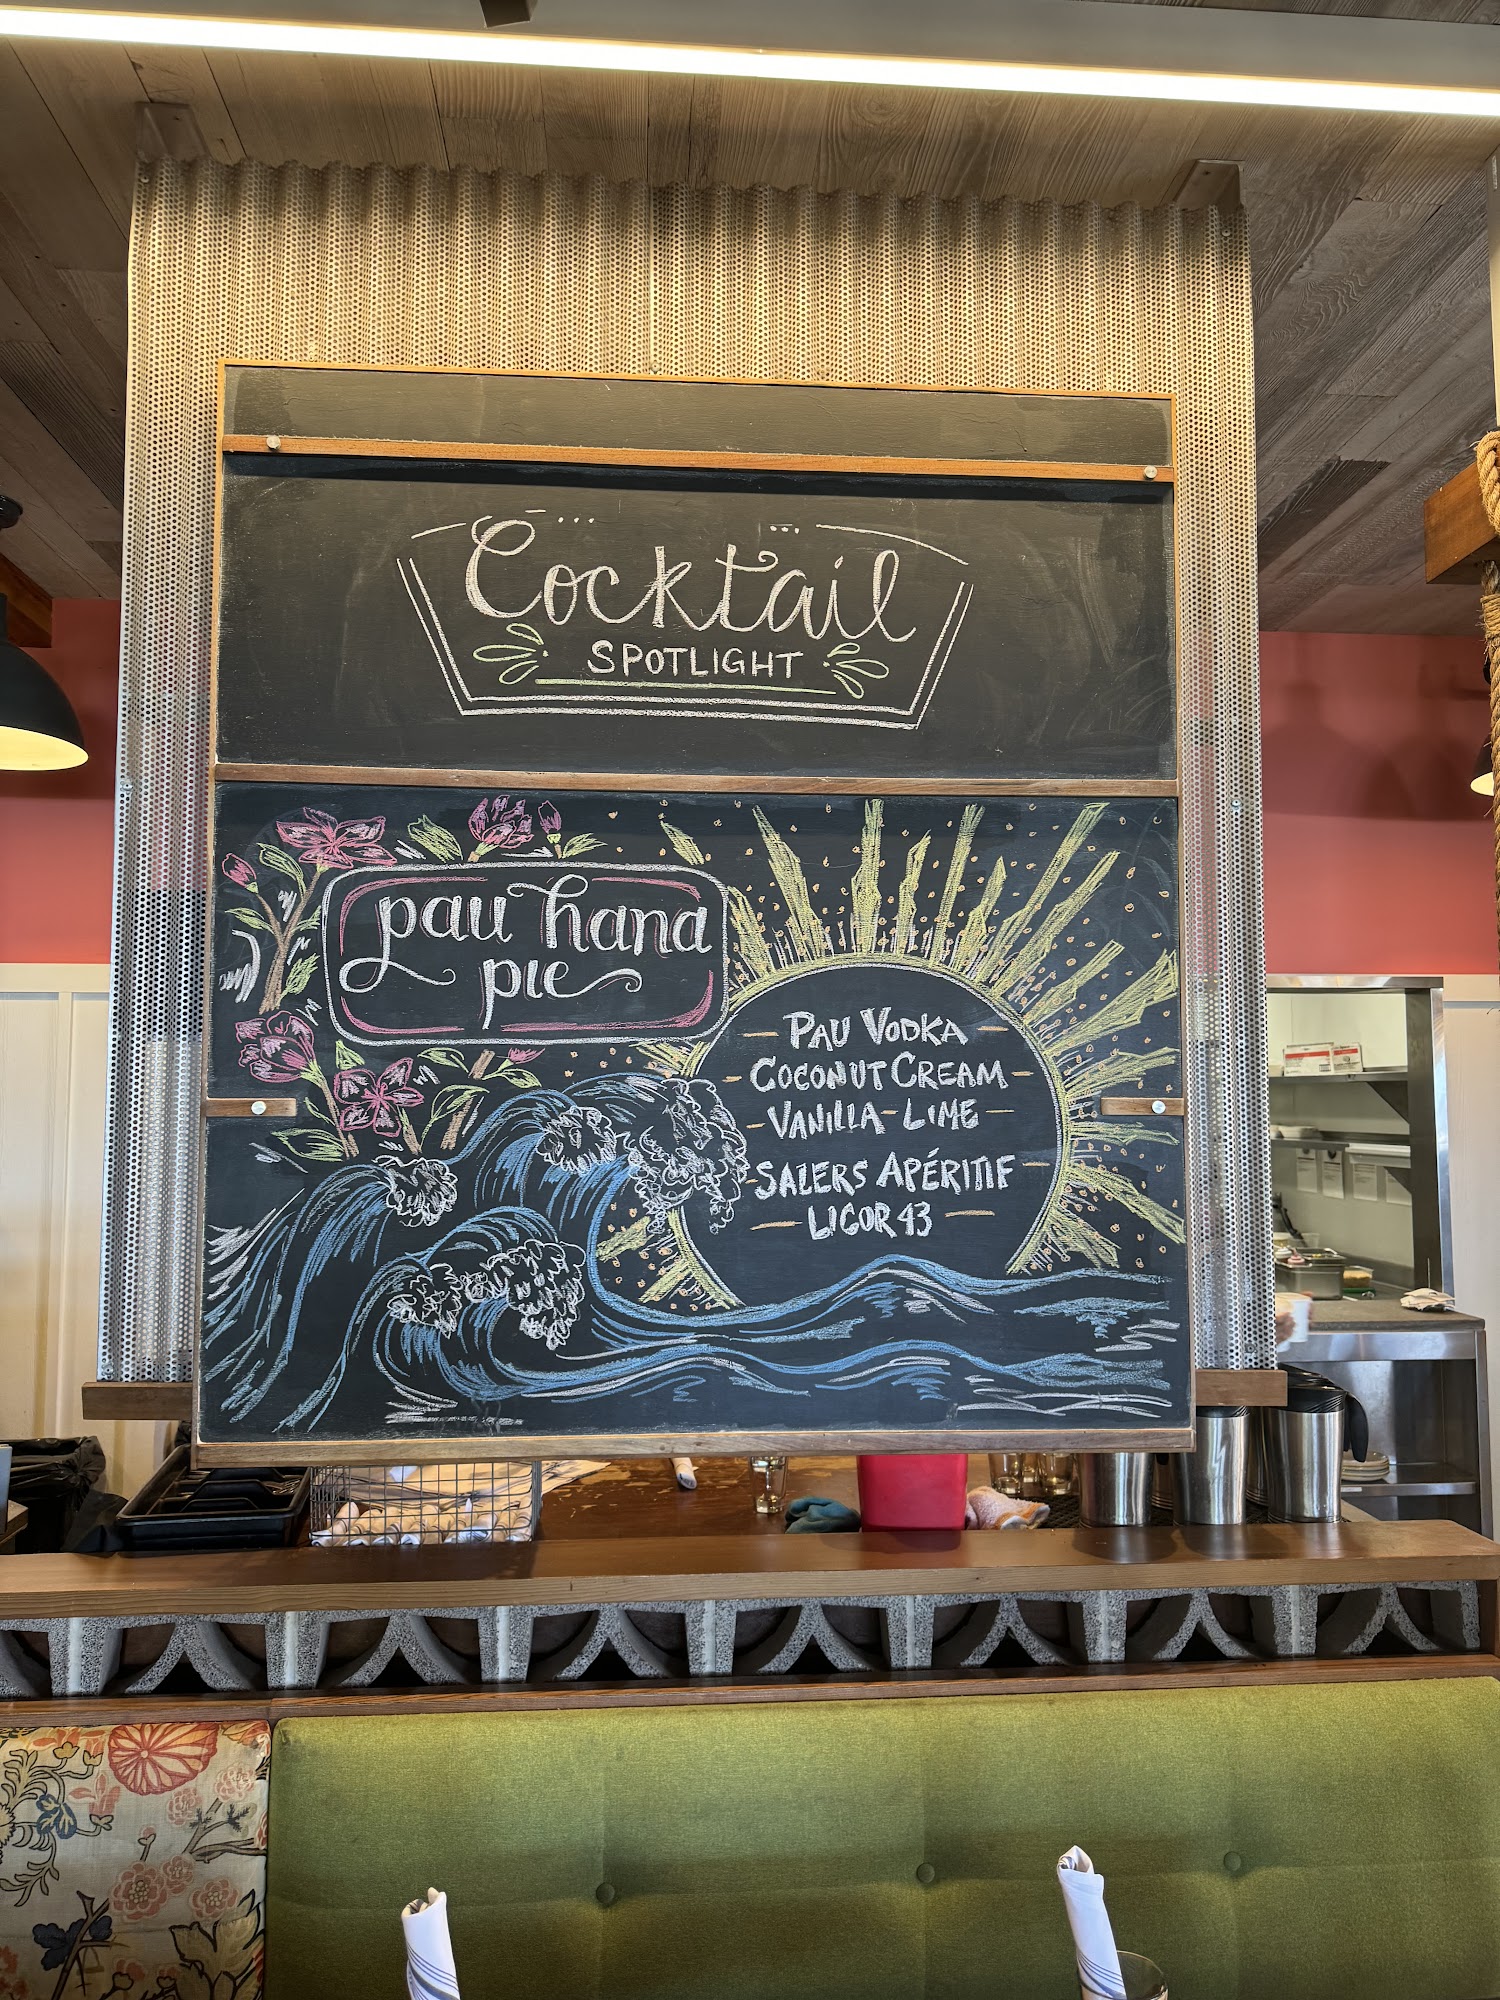 Cocktail
SPOTLIGHT
pau hana
pie
PAU VODKA
COCONUT CREAM
VANILLA-LIME
SALERS APÉRITIF
LICOR 43